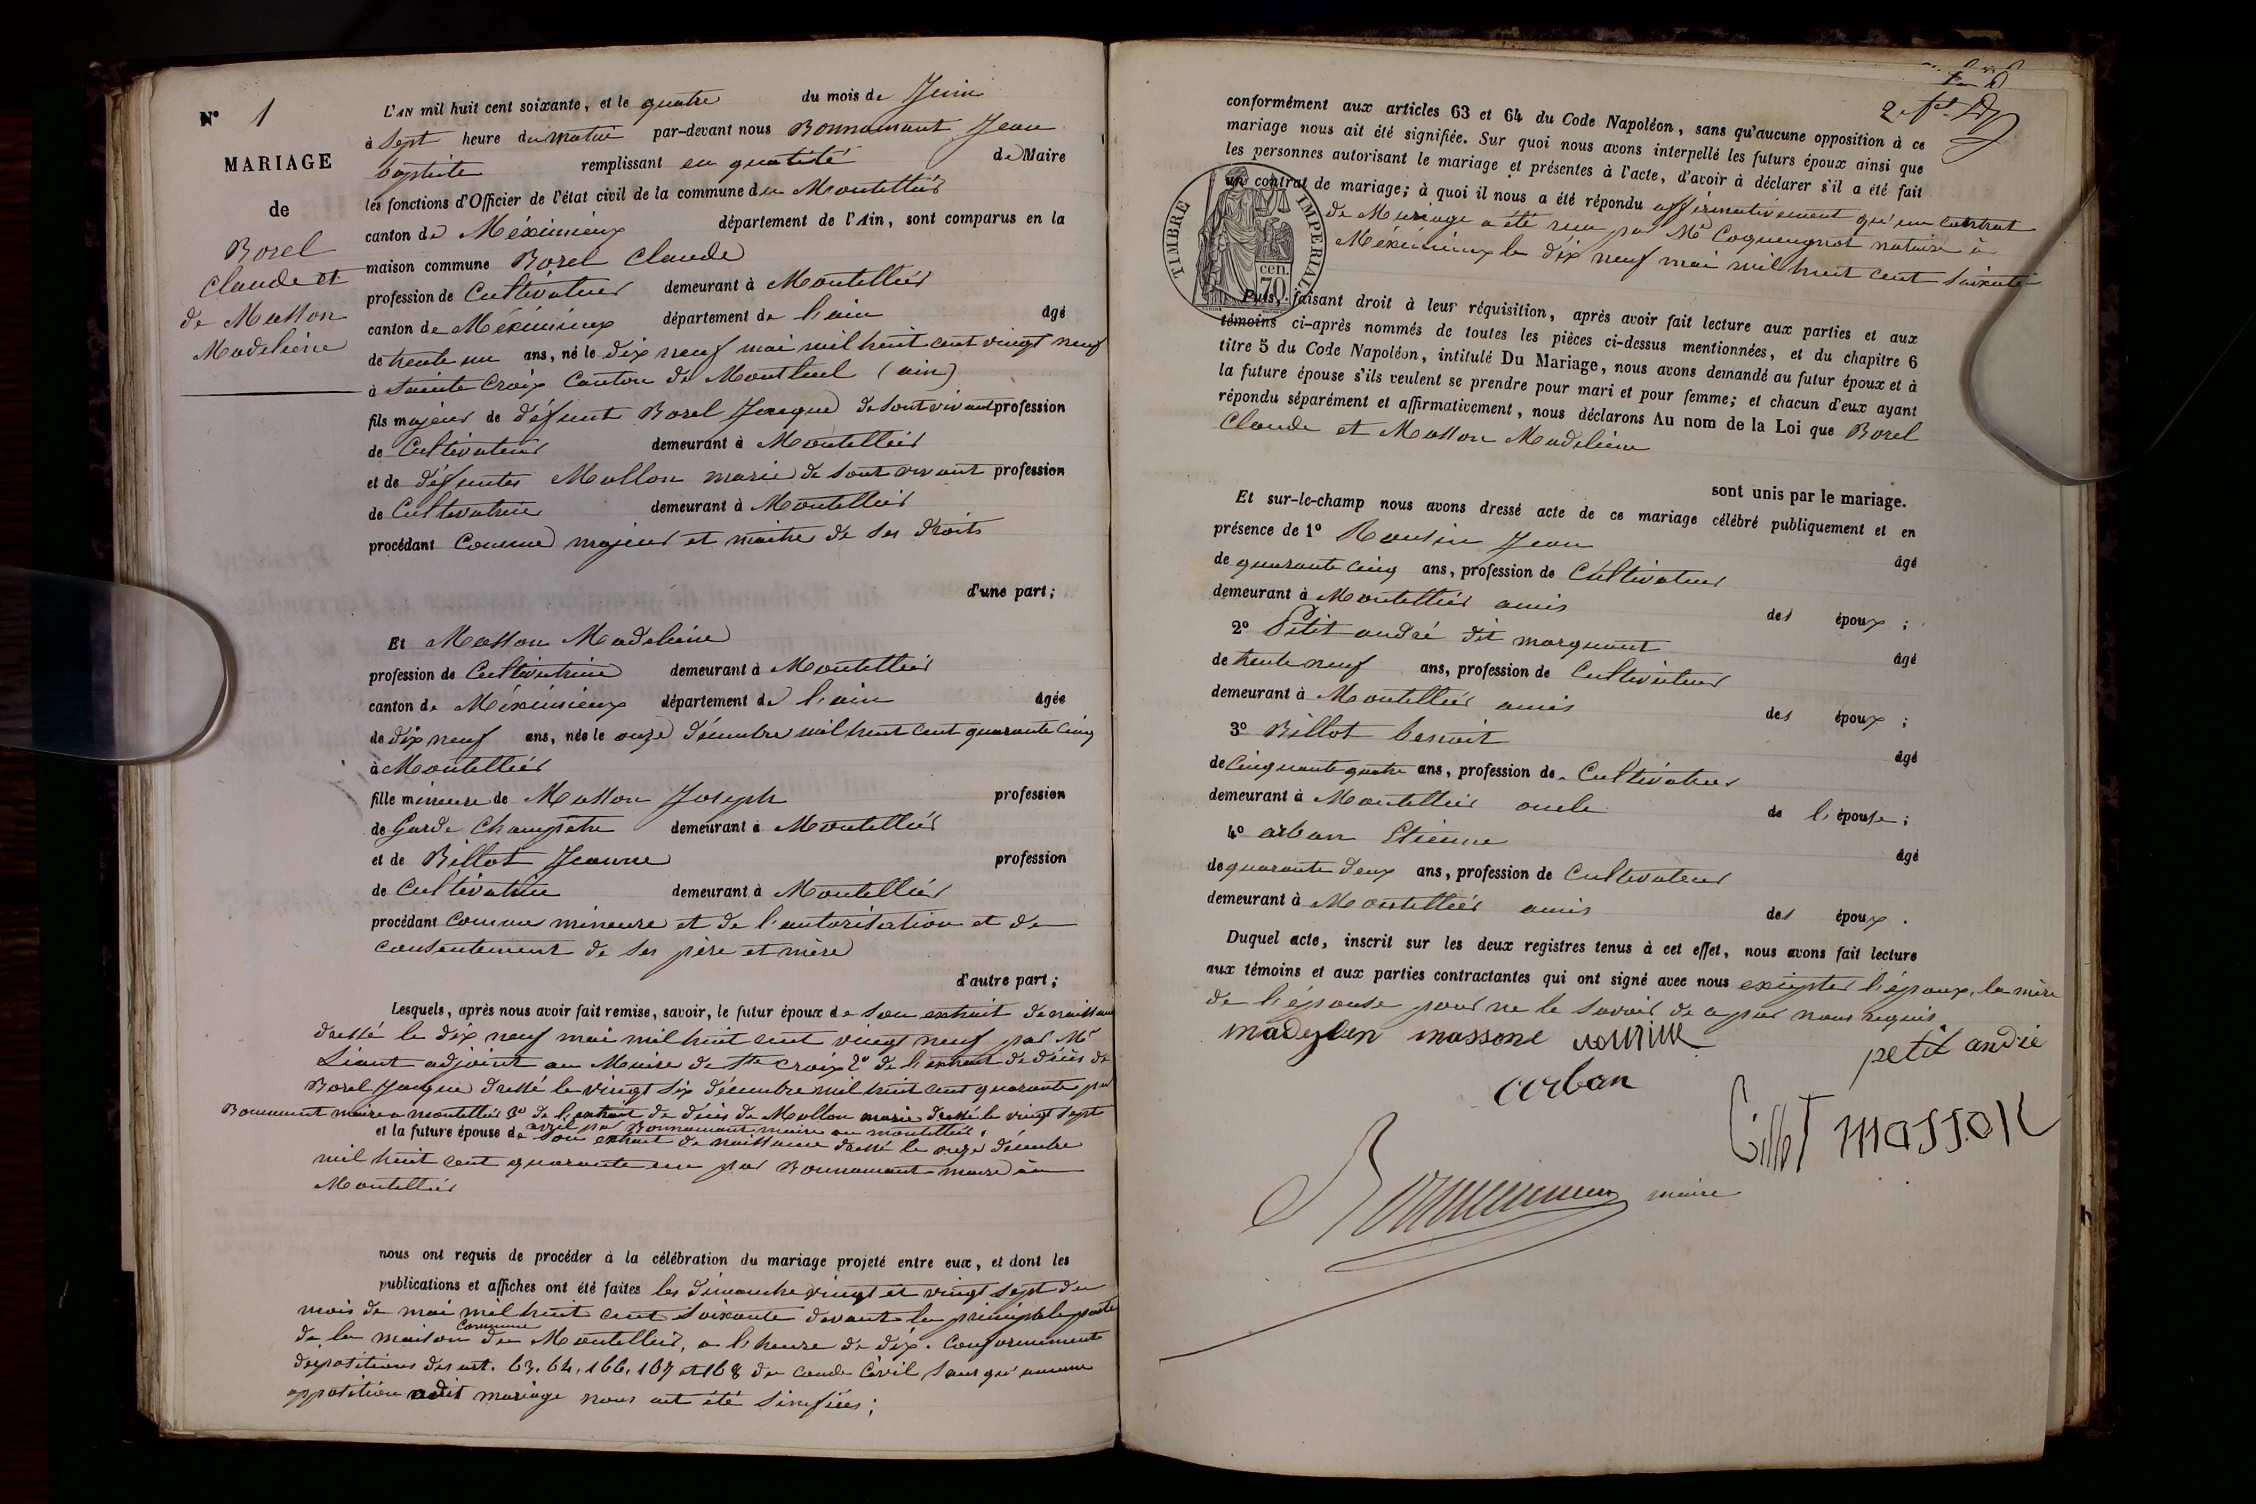 N° 1
MARIAGE
de
Borel
Claude et
de Masson
Madeleine
L'AN mil huit cent soixante, et le quatre du mois de Juin
à sept heure du matin par-devant nous Bonnamant Jean
baptiste remplissant en qualité de Maire
les fonctions d'Officier de l'état civil de la commune du Montellier
canton de Méximieux département de l'Ain, sont comparus en la
maison commune Borel Claude
profession de Cultivateur demeurant à Montellier
canton de Méximieux département de l'ain âgé
de trente un ans, né le dix neuf mai mil huit cent vingt neuf
à Sainte Croix Canton de Montluel (ain)
fils majeur de défunt Borel Jacque de sont vivant profession
de Cultivateur demeurant à Montellier
et de défuntes Mollon marie de sont vivant profession
de Cultivatrice demeurant à Montellier
procédant Comme majeur et maitre de ses droits
d'une part;
Et Masson Madeleine
profession de Cultivatrice demeurant à Montellier
canton de Méximieux département de l'ain âgée
de dix neuf ans, née le onze décembre mil huit cent quarante cinq
à Montellier
fille mineure de Masson Joseph profession
de Garde Champêtre demeurant à Montellier
et de Billot Jeanne profession
de Cultivatrice demeurant à Montellier
procédant comme mineure et de l'autorisation et de
consentement de ses père et mère
d'autre part;
Lesquels, après nous avoir fait remise, savoir, le futur époux de son extrait de naissance
dressé le dix neuf mai mil huit cent vingt neuf par Mr
Liant adjoint au Maire de Ste croix 2° de l'extrait de décès de
Borel Jacque dressé le vingt six décembre mil huit cent quarante par
Bonnamant maire a montellier 3° de l'extrait de décès de Mollon marie dressé le vingt sept
avril par Bonnamant maire au montellier.
et la future épouse de son extrait de naissance dressé le onze décembre
mil huit cent quarante un par Bonnamant maire au
Montellier
nous ont requis de procéder à la célébration du mariage projeté entre eux, et dont les
publications et affiches ont été faites les dimanche vingt et vingt sept du
mois de mai mil huit cent soixante devant la principale porte
de la maison Commune du Montellier, a l'heure de dix. Conformement
dispositions des art. 63, 64, 166, 167 et 168 du code Civil, sans qu'aucune
opposition audit mariage nous ait été sinifiées;
conformément aux articles 63 et 64 du Code Napoléon, sans qu'aucune opposition à ce
mariage nous ait été signifiée. Sur quoi nous avons interpellé les futurs époux ainsi que
les personnes autorisant le mariage et présentes à l'acte, d'avoir à déclarer s'il a été fait
un contrat de mariage; à quoi il nous a été répondu affirmativement qu'un contrat
de Mariage a été reçu par Me Coquengnot notaire à
Méximieux le dix neuf mai mil huit cent soixante
TIMBRE IMPERIAL
70 cen.
Puis, faisant droit à leur réquisition, après avoir fait lecture aux parties et aux
témoins ci-après nommés de toutes les pièces ci-dessus mentionnées, et du chapitre 6
titre 5 du Code Napoléon, intitulé Du Mariage, nous avons demandé au futur époux et à
la future épouse s'ils veulent se prendre pour mari et pour femme; et chacun d'eux ayant
répondu séparément et affirmativement, nous déclarons Au nom de la Loi que Borel
Claude et Masson Madeleine
sont unis par le mariage.
Et sur-le-champ nous avons dressé acte de ce mariage célébré publiquement et en
présence de 1° Rousin Jean âgé
de quarante cinq ans, profession de Cultivateur
demeurant à Montellier amis des époux;
2° Petit andré dit marquant âgé
de trente neuf ans, profession de Cultivateur
demeurant à Montellier amis des époux;
3° Billot benoit âgé
de Cinquante quatre ans, profession de Cultivateur
demeurant à Montellier oncle de l'épouse;
4° arban Etienne âgé
de quarante deux ans, profession de Cultivateur
demeurant à Montellier amis des époux.
Duquel acte, inscrit sur les deux registres tenus à cet effet, nous avons fait lecture
aux témoins et aux parties contractantes qui ont signé avec nous excepter l'époux, la mère
de l'épouse pour ne le savoir de a par nous requis
madeylen massone
petit andré
arban
Billot masson
Bonnamant maire